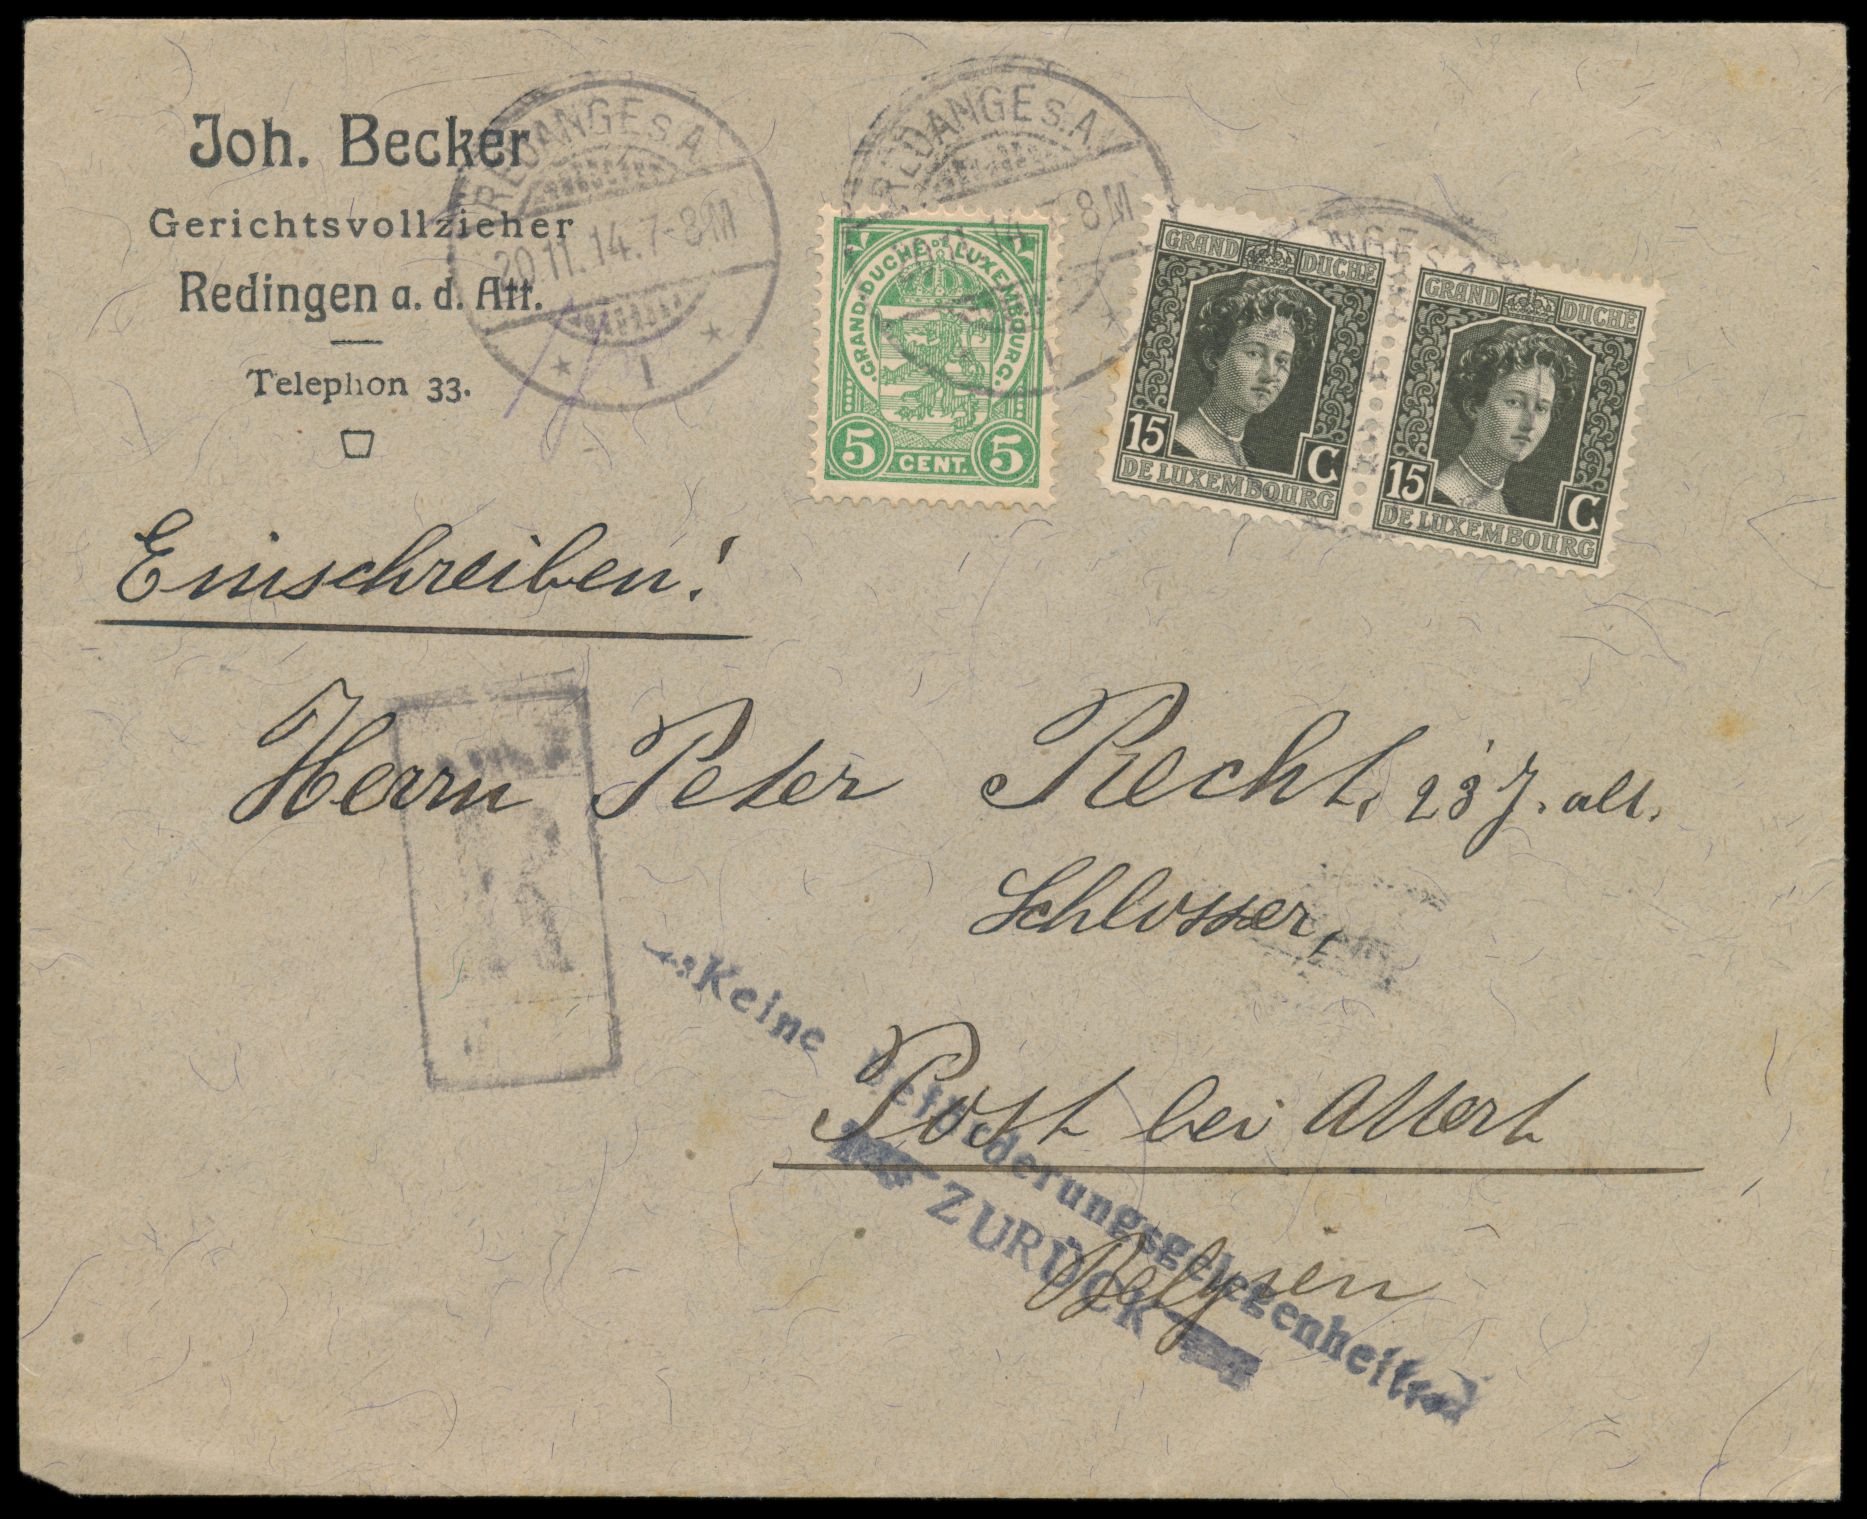 Joh. Becker
Gerichtsvollzieher
Redingen a. d. Att.
Telephon 33.
REDANGE S.A.
20.11.14.7-8M
1
REDANGE S.A.
14.7-8M
GRAND-DUCHÉ DE LUXEMBOURG
5 CENT. 5
GRAND DUCHÉ
15 C
DE LUXEMBOURG
GRAND DUCHÉ
15 C
DE LUXEMBOURG
Einschreiben!
R
Herrn Peter Recht, 23 J. alt.
Schlosser,
Post bei Attert
Belgien
Keine Beförderungsgelegenheit
ZURÜCK